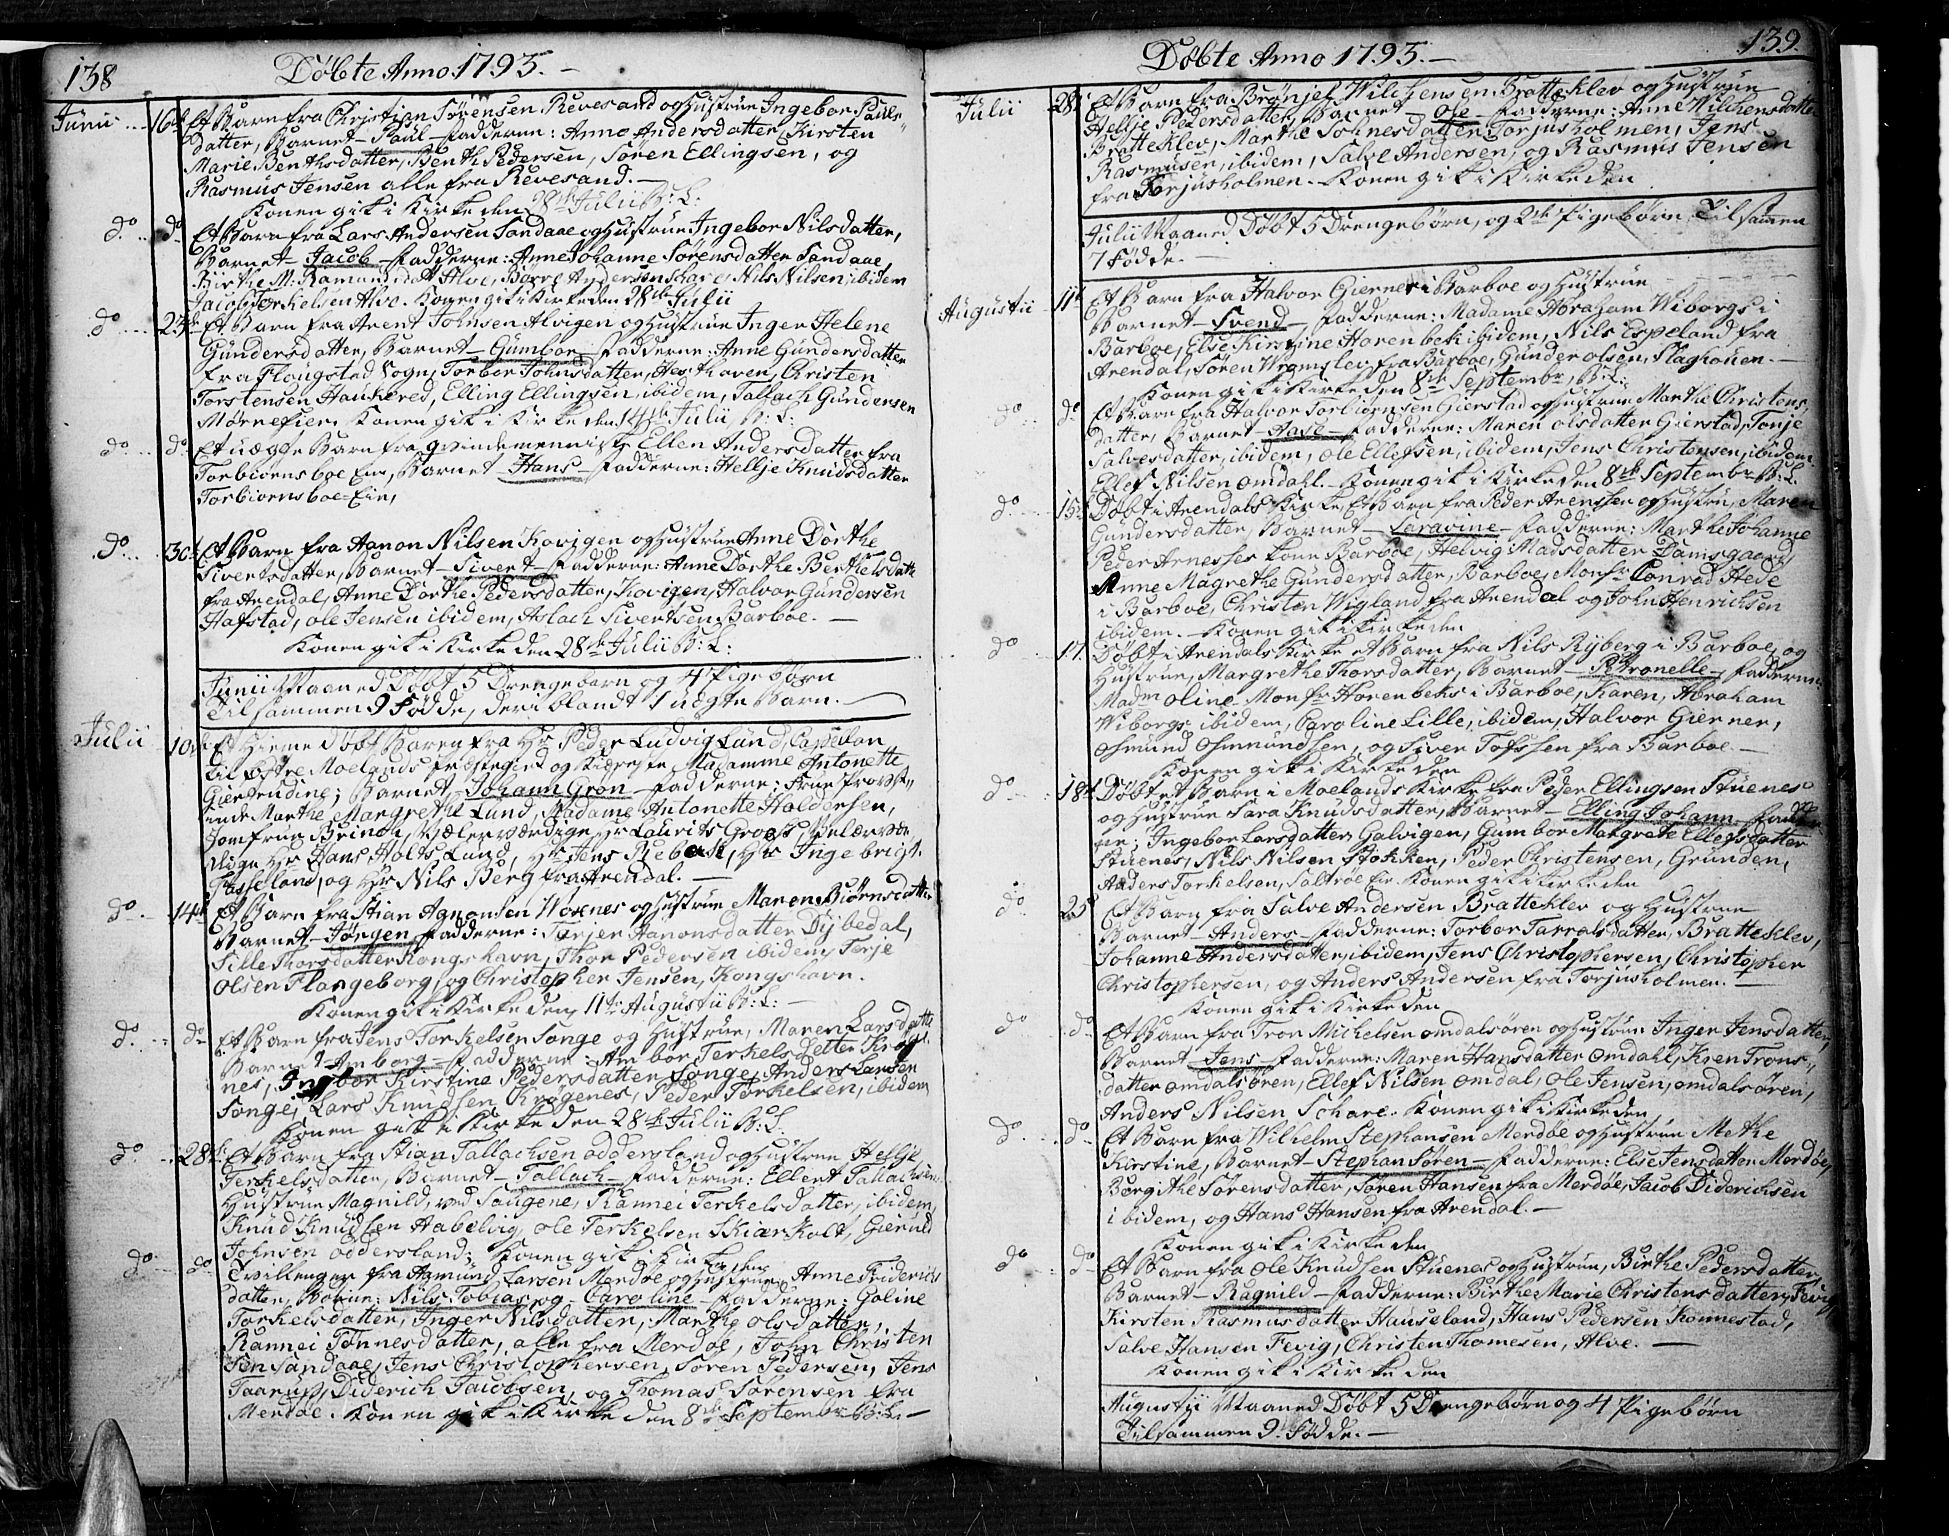 138
Døbte Anno 1793.
Junii 16de Et Barn fra Christian Sørensen Revesand og Hustrue Ingebor Pauls-
datter, Barnet Paul Fadderne: Anne Andersdatter, Kirsten
Marie Benthsdatter, Benth Pedersen, Søren Ellingsen, og
Rasmus Jensen alle fra Revesand.
Konen gik i Kirke den 28de Julii B: L:
do do Et Barn fra Lars Andersen Sandaae og Hustrue Ingebor Nilsdatter,
Barnet Jacob Fadderne: Anne Johanne Sørensdatter Sandaae,
Birthe M: Ramundsdat Alve, Børre Andersen Schare, Nils Nilsen, ibidem
Jacob Torkelsen Alve. Konen gik i Kirke den 28de Julii
do 23de Et Barn fra Arent Johnsen Alvigen og Hustrue Inger Helene
Gundersdatter, Barnet Gumbor Fadderne: Anne Gundersdatter
fra Flougstad Sogn, Torbor Johnsdatter, Hesthaven, Christen
Torstensen Haukered, Elling Ellingsen, ibidem, Tallach Gundersen
Mørnefier. Konen gik i Kirke den 14de Julii B: L:
do do Et uægte Barn fra Qvindemenniske Ellen Andersdatter fra
Torbiørnsboe Eie, Barnet Hans Fadderne: Hellje Knudsdatter
Torbiornsboe-Eie,
do 30te Et Barn fra Aanon Nilsen Kovigen og Hustrue Anne Dorthe
Sivertsdatter, Barnet Sivert Fadderne: Anne Dorthe Berthelsdatt
fra Arendal, Anne Dorthe Pedersdatter, Kovigen, Halvor Gundersen
Hafstad, Ole Jensen ibidem, Aslach Sivertsen Barboe.
Konen gik i Kirke den 28de Julii B: L:
Junii Maaned Døbt 5 Drengebørn og 4 Pigebørn
Tilsammen 9 Fødde, deriblandt 1 uægte Barn.
Julii 10de Et Hiemedøbt Barn fra Hr Peder Ludvig Lund, Capellan
til Østre Moelands Præstegield og Kiæreste Madamme Antonette
Giertrudine; Barnet Johann Gron Fadderne: Frue Provst-
inde Marthe Margrethe Lund, Madame Antonette Haldorsen,
Jomfrue Brinch, Velærværdige Hr Laurits Groos, Velærvær-
dige Hr Hans Holts Lund, Hr Jens Piebach, Hr Ingebrigt
Fasseland, og Hr Nils Berg fra Arendal.
do 14de Et Barn fra Stian Agnonsen Woxnes og Hustrue Maren Biørnsdatt
Barnet Jørgen Fadderne: Torjer Hanonsdatter Dybedal,
Sille Thorsdatter Kongshavn, Thor Pedersen ibidem, Terje
Olsen Flangeborg, og Christopher Jensen, Kongshavn.
Konen gik i Kirke den 11te Augustii B: L:
do do Et Barn fra Jens Torkelsen Songe og Hustrue, Maren Larsdatte
Barnet Amborg Fadderne: Ambor Terkelsdatter Krøge-
nes, Kirstine Pedersdatter Songe, Anders Larsen
Songe, Lars Knudsen Krøgenes, Peder Torkelsen, ibidem
Konen gik i Kirke den 28de Julii B: L:
do 28de Et Barn fra Stian Tallachsen Oddersland og Hustrue Hellje
Terkelsdatter, Barnet Tallach Fadderne: Ellert Tallachsens
Hustrue Magnild, ved Saugene, Rannei Terkelsdatter, ibidem,
Knud Knudsen Aabelvig, Ole Terkelsen Skiærkolt, Gieruld
Johnsen Oddersland: Konen gik i Kirke den
do do Tvillenger fra Agmund Larsen Merdøe og Hustrue Anne Friderichs
datter, Børne: Nils Tobias og Caroline Fadderne: Goline
Torkelsdatter, Inger Nilsdatter, Marthe Olsdatter,
Rannei Tønnesdatter, alle fra Merdøe, John Christen
sen Sandaae, Jens Christophersen, Søren Pedersen, Jens
Taarup, Diderich Jacobsen, og Thomas Sørensen fra
Merdøe. Konen gik i Kirke den 8de Septembr B: L:
139.
Døbte Anno 1793.
Julii 28de Et Barn fra Brønjel Wilchensen Bratteklev og Hustrue
Hellje Pedersdatter, Barnet Ole Fadderne: Anne Wilchensdatte
Bratteklev, Marthe Johnesdatter Torjusholmen, Jens
Rasmusen, ibidem, Salve Andersen, og Rasmus Jensen
fra Torjusholmen. Konen gik i Kirke den
Julii Maaned Døbt 5 Drengebørn, og 2de Pigebørn, Tilsammen
7 Fødde.
Augustii 11te Et Barn fra Halvor Gierner i Barboe og Hustrue
Barnet Svend Fadderne: Madame Abraham Wiborgs i
Barboe, Else Kirstine Horenbek ibidem, Nils Espeland fra
Arendal, Søren Wromslev fra Barboe, Gunder Olsen, Flaghouen.
Konen gik i Kirke den 8de Septembr, B: L:
do do Et Barn fra Halvor Torbiørnsen Gierstad og Hustrue Marthe Christens
datter, Barnet Aase Fadderne: Maren Olsdatter Gierstad, Tonje
Salvesdatter, ibidem, Ole Ellefsen, ibidem, Jens Christensen, ibidem.
Ellef Nilsen Omdahl. Konen gik i Kirke den 8de Septembr B: L.
do 15de Døbt i Arendals Kirke, Et Barn fra Peder Arenssen og Hustrue, Maren
Gundersdatter, Barnet Saravine Fadderne: Marthe Johanne
Peder Arnesses Kone Barboe, Helvig Madsdatter Damsgaard,
Anne Magrethe Gundersdatter, Barboe, Monsr Conrad Hede
i Barboe, Christen Wigland fra Arendal og John Henrichsen
ibidem. Konen gik i Kirke den
do 17. Døbt i Arendals Kirke et Barn fra Nils Ryberg i Barboe, og
Hustrue, Margrethe Thorsdatter, Barnet Petronelle, Fadderne:
Madm Oline Monsr Horenbeks i Barboe, Karen, Abraham
Wiborgs ibidem, Caroline Lille, ibidem, Halvor Gierner,
Osmund Osmundsen, og Siver Tofssen fra Barboe
Konen gik i Kirke den
do 18de Døbt et Barn i Moelands Kirke fra Peder Ellingsen Stuenes
og Hustrue Sara Knudsdatter, Barnet Elling Johann Fadder-
ne; Ingebor Larsdatter, Galvigen, Gumbor Margrete Ellefsdatter
Stuenes, Nils Nilsen Stokken, Peder Christensen, Grunden,
Anders Torkelsen, Saltrøe Eie. Konen gik i Kirke den
do 25 Et Barn fra Salve Andersen Bratteklev og Hustrue
Barnet Anders Fadderne: Torbor Tarralsdatter, Bratteklev,
Johanne Andersdatter, ibidem, Jens Christophersen, Christopher
Christophersen, og Anders Andersen fra Torjusholmen.
Konen gik i Kirke den
do do Et Barn fra Tron Michelsen Omdalsøren og Hustrue Inger Jensdatter,
Barnet Jens Fadderne: Maren Hansdatter Omdahl, Kren Trons-
datter Omdalsøren, Ellef Nilsen Omdal, Ole Jensen, Omdalsøren,
Anders Nilsen Schare. Konen gik i Kirke den
do do Et Barn fra Wilhelm Stephansen Merdøe og Hustrue Mette
Kirstine, Barnet Stephan Søren Fadderne: Else Jensdatter Merdøe,
Borgithe Sørensdatter, Søren Hansen fra Merdøe, Jacob Diderichsen
ibidem, og Hans Hansen fra Arendal.
Konen gik i Kirke den
do do Et Barn fra Ole Knudsen Stuenes og Hustrue, Birthe Pedersdatter,
Barnet Ragnild Fadderne: Birthe Marie Christensdatter, Fevig
Kirsten Rasmusdatter Hauseland, Hans Pedersen Konnestad,
Salve Hansen Fevig, Christen Thomesen, Alve.
Konen gik i Kirke den
Augustii Maaned Døbt 5 Drengebørn og 4 Pigebørn
Tilsammen 9. Fødde.